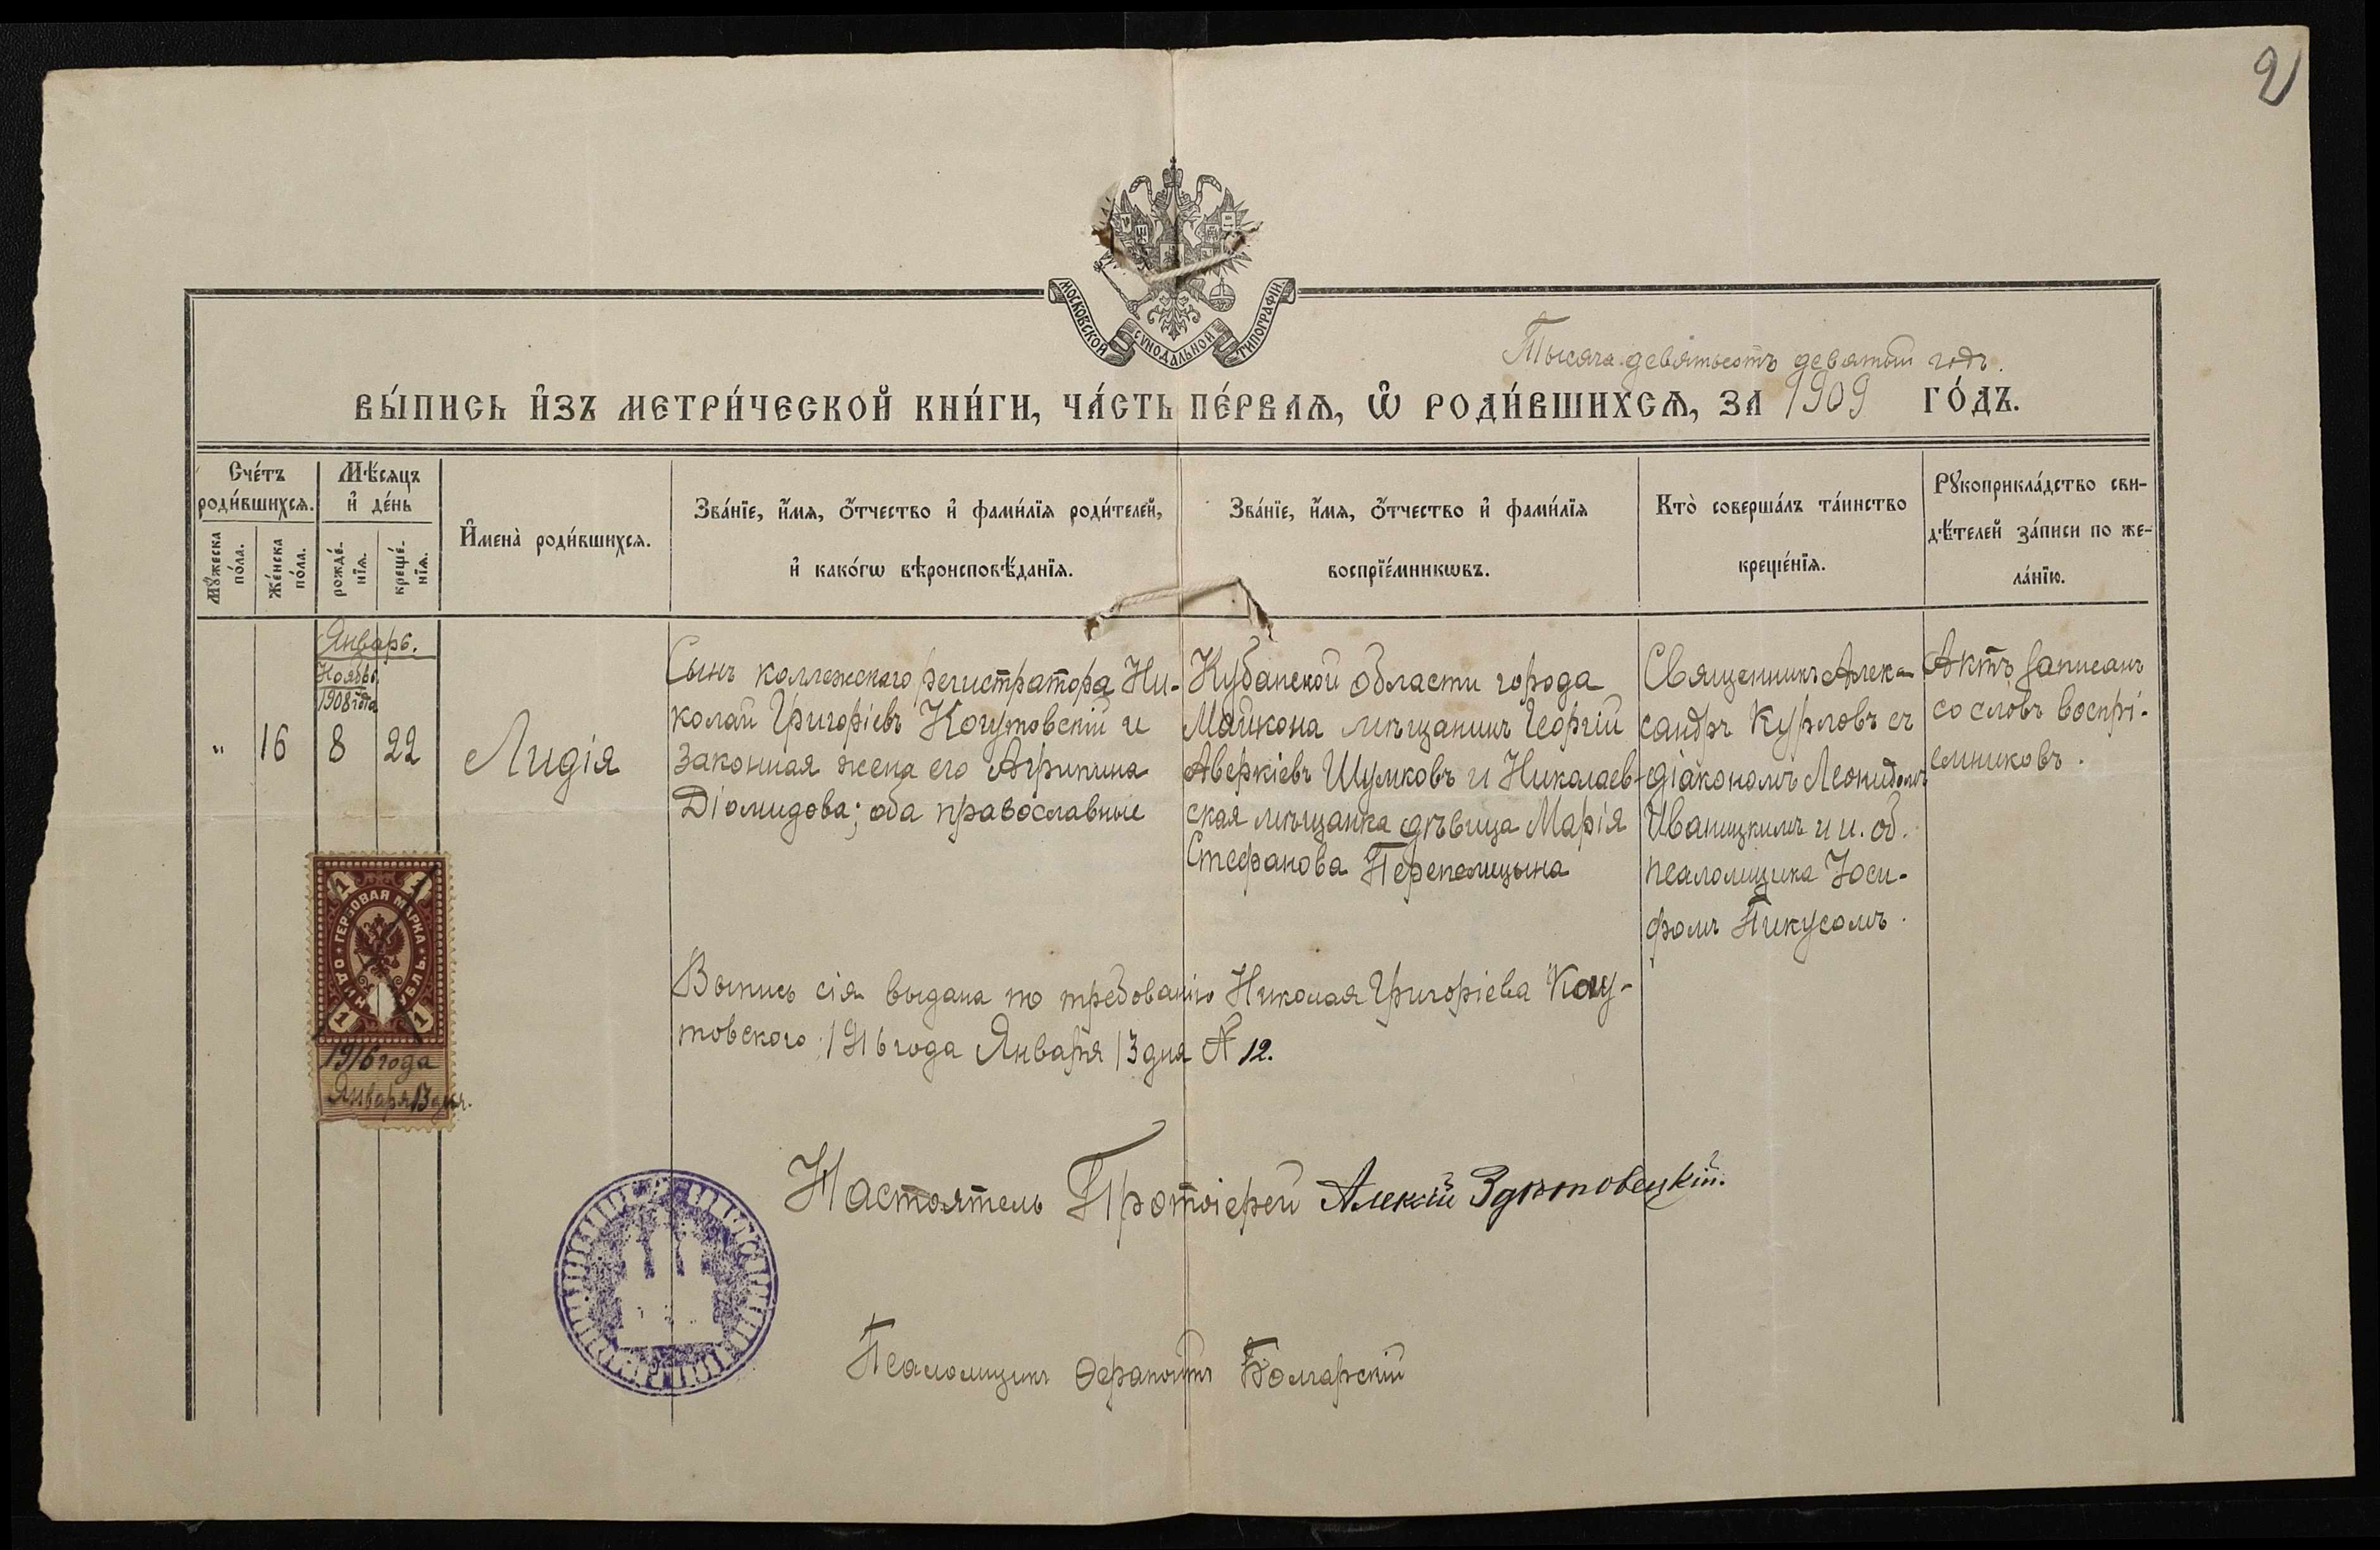 2
МОСКОВСКОЙ СѴНОДАЛЬНОЙ ТИПОГРАФІИ
Тысяча девятьсотъ девятый годъ.
ВЫ́ПИСЬ И҆ЗЪ МЕТРИ́ЧЕСКОЙ КНИ́ГИ, ЧА́СТЬ ПЕ́РВАѦ, Ѡ҆ РОДИ́ВШИХСѦ, ЗА 1909 ГО́ДЪ.
Сче́тъ роди́вшихсѧ.
Мꙋ́жеска по́ла.
Же́нска по́ла.
Мѣ́сѧцъ и҆ де́нь
рожде́-нїѧ.
креще́-нїѧ.
И҆мена̀ роди́вшихсѧ.
Зва́нїе, и҆́мѧ, ѻ҆́тчество и҆ фами́лїѧ роди́телей,
и҆ како́гѡ вѣроисповѣ́данїѧ.
Зва́нїе, и҆́мѧ, ѻ҆́тчество и҆ фами́лїѧ
воспрїе́мникѡвъ.
Кто̀ соверша́лъ та́инство
креще́нїѧ.
Рꙋкоприкла́дство сви-
дѣ́телей за́писи по же-
ла́нїю.
Январь.
Ноябрь
1908 года
"
16
8
22
Лидія
Сынъ коллежскаго регистратора Ни-
колай Григоріевъ Когутовскій и
законная жена его Агрипина
Діомидова; оба православные
Кубанской области города
Майкопа мѣщанинъ Георгій
Аверкіевъ Шумковъ и Николаев-
ская мѣщанка дѣвица Марія
Стефанова Перепелицына
Священникъ Алек-
сандръ Курловъ съ
діакономъ Леонидомъ
Иваницкимъ и и. об.
псаломщика Іоси-
фомъ Пикусомъ.
Актъ записанъ
со словъ воспрі-
емниковъ.
1 1
ГЕРБОВАЯ МАРКА
ОДИНЪ РУБЛЬ
1 1
1916 года
Января 13 дня.
Выпись сія выдана по требованію Николая Григоріева Когу-
товского 1916 года Января 13 дня № 12.
Настоятель Протоіерей Алексій
Псаломщикъ Ѳерапонтъ Болгарскій